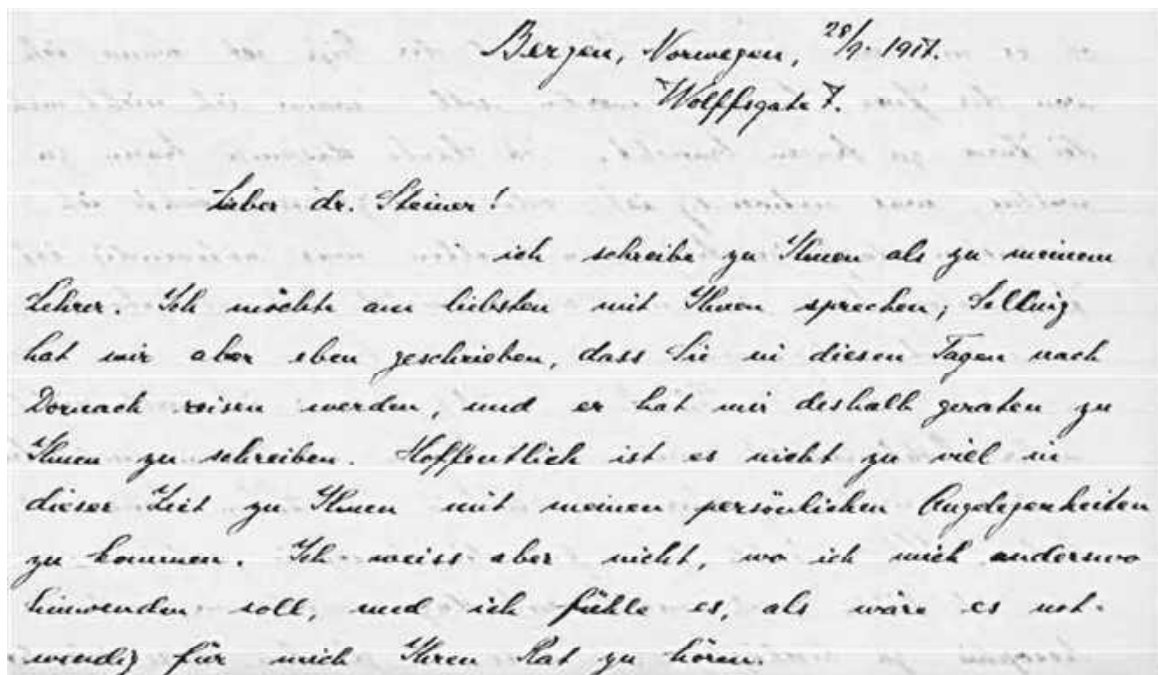 Bergen, Norwegen, 28/9. 1917.
Wolffsgate 7.
Lieber dr. Steiner!
ich schreibe zu Ihnen als zu meinem
Lehrer. Ich möchte am liebsten mit Ihnen sprechen; Selling
hat mir aber eben geschrieben, dass Sie in diesen Tagen nach
Dornach reisen werden, und er hat mir deshalb geraten zu
Ihnen zu schreiben. Hoffentlich ist es nicht zu viel in
dieser Zeit zu Ihnen mit meinen persönlichen Angelegenheiten
zu kommen. Ich weiss aber nicht, wo ich mich anderswo
hinwenden soll, und ich fühle es, als wäre es not-
wendig für mich Ihren Rat zu hören.